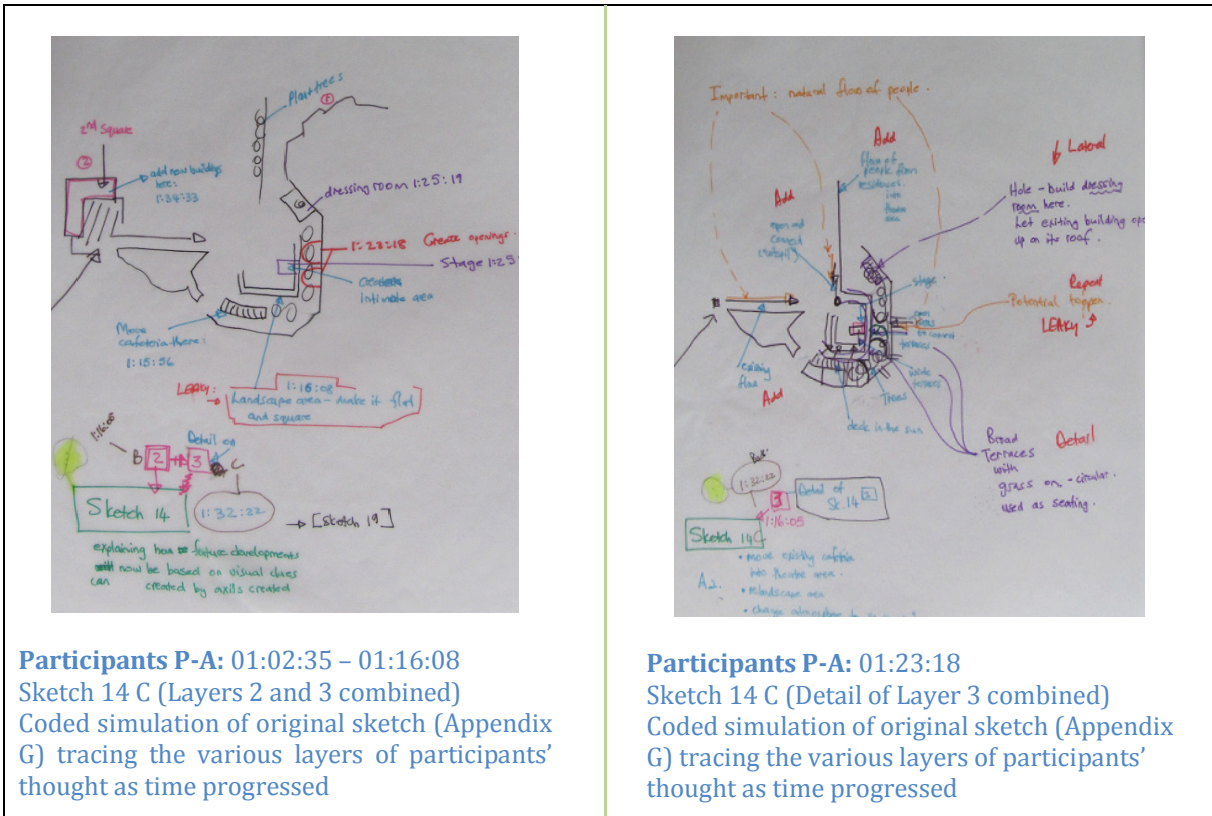 Plant trees
①
2nd Square
②
add new buildings
here:
1:34:33
dressing room 1:25:19
1:22:18 Create openings.
Stage 1:25
intimate area
Move
cafeteria there:
1:15:56
LEAKY:
1:16:08
Landscape area - make it flat
and square
1:16:08
Detail on
B 2 3 C
Sketch 14
1:32:22
[Sketch 19]
explaining how future developments
can now be based on visual clues
created by axils created
Participants P-A: 01:02:35 – 01:16:08
Sketch 14 C (Layers 2 and 3 combined)
Coded simulation of original sketch (Appendix
G) tracing the various layers of participants’
thought as time progressed
Important: natural flow of people.
Add
flow of
people from
residences
into
area
Add
open and
connect
Lateral
Hole - build dressing
room here.
Let exiting building ope
up on its roof.
stage
Repeat
Potential toppen.
LEAKY
terraces
existing
flow
Add
Trees
terraces
deck in the sun
Broad
Terraces
with
grass on - circular.
used as seating.
Detail
1:32:22
3
Detail of
Sk.14 2
1:16:05
Sketch 14C
• move existing cafeteria
into theatre area.
A2.
• relandscape area
• change atmosphere to
Participants P-A: 01:23:18
Sketch 14 C (Detail of Layer 3 combined)
Coded simulation of original sketch (Appendix
G) tracing the various layers of participants’
thought as time progressed